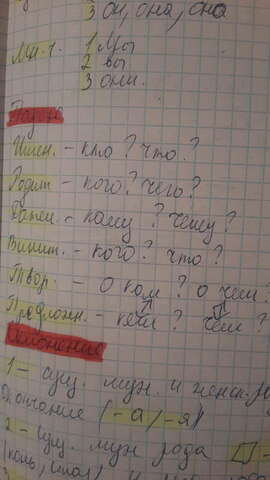 3 он, она, оно
Мн.ч. 1 мы
2 вы
3 они.
Падеж
Имен. - кто? что?
Родит. - кого? чего?
Дател. - кому? чему?
Винит. - кого? что?
Твор. - о ком? о чём?
Предложн. - кем? чем?
Склонение
1 - сущ. муж. и женск. р
Окончание (-а/-я)
2 - сущ. муж рода